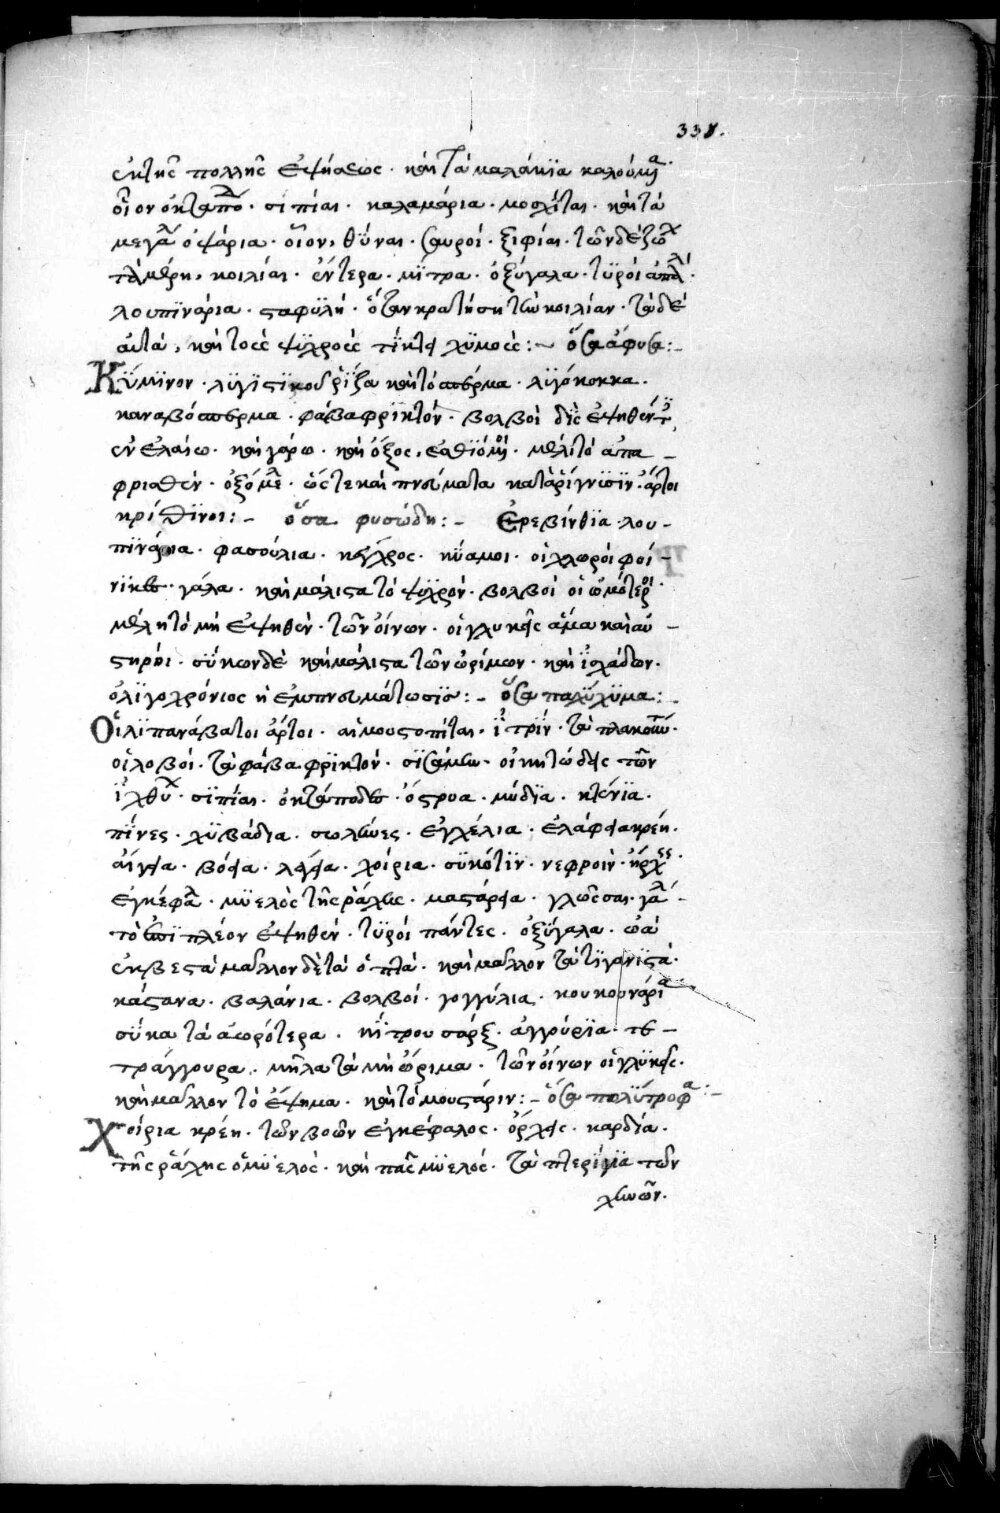 331.
ἐκ τῆς πολλῆς ἑψήσεως· καὶ τὰ μαλάκϊα καλούμ(εν)α·
οἷον ὀκταπο· σιπίαι· καλαμάρια· μοσχίται· καὶ τὰ
μεγάλ ὀψάρια· οἷον, θῦναι· σαυροί· ξιφίαι· τῶν δὲ ζώ
τὰ μέρη, κοιλίαι· ἔντερα· μῖτρα· ὀξύγαλα· τϋροὶ ἁπαλοί·
λουπϊνάρια· σταφϋλὴ· ὅταν κρατήσῃ τὴν κοιλίαν· τὰ δὲ
αὐτὰ, καὶ τοὺς ψϋχροὺς τίκτει χϋμοὺς:– ὅσα ἄφυσα:–
Κϋμϊνον· λϊγϊστϊκοῦ ῥίζα καὶ τὸ σπέρμα· λϊγόκοκκα·
καναβόσπερμα· φάβα φρϊκτὸν· βολβοὶ δὶς ἑψηθέντ(ες)
ἐν ἐλαίω· καὶ γάρω· καὶ ὄξος, ἐσθϊόμ(εν)οι· μέλι τὸ ἀπα–
φρισθὲν· ὀξόμελ· ὥστε καὶ πνεύματα καταῤῥιγνῦσϊν· ἄρτοι
κρίθϊνοι:– ὅσα φυσώδη:– Ἐρεβίνθϊα· λου–
πϊνάρια· φασούλια· κέγχρος· κϋαμοι· οἱ χλωροὶ φοί–
νϊκες· γάλα· καὶ μάλιστα τὸ ψϋχρὸν· βολβοὶ οἱ ὠμότεροι·
μέλη τὸ μὴ ἑψηθὲν· τῶν οἴνων· οἱ γλυκεῖς ἅμα καὶ αὐ–
στηροὶ· σύκων δὲ καὶ μάλιστα τῶν ὡρίμων· καὶ ἰσχάδων·
ὀλϊγοχρόνιος ἡ ἐμπνευμάτωσϊς:– ὅσα παχύχϋμα:–
Οἱ λϊπανάβατοι ἄρτοι· αἱ μουστοπίται· ἴτρϊν· τὰ πλακούν·
οἱ λοβοὶ· τὰ φάβα φρϊκτὸν· σϊσάμην· οἱ κητώδεις τῶν
ἰχθύ· σϊπίαι· ὀκτάποδες· ὄστρυα· μύδϊα· κτένϊα·
πῖνες· χϋβάδια· σωλῆνες· ἐγχέλια· ἐλάφεια κρέη·
αἴγεια· βόεια· λάγεια· χοίρια· σϋκότϊν· νεφροὶν· ὄρχεις·
ἐγκέφαλ· μϋελὸς τῆς ῥάχης· μαστάρεια· γλῶσσαι· γάλα–
τὸ ἐπϊπλέον ἑψηθὲν· τϋροὶ πάντες· ὀξύγαλα· ὠὰ
ἐκβεστὰ μᾶλλον δὲ τὰ ὀπτὰ· καὶ μᾶλλον τὰ τϊγανϊστὰ·
κάστανα· βαλάνια· βολβοὶ· γογγύλια· κουκουνάρια
σύκα τὰ ἀωρότερα· κίτρου σάρξ· ἀγγούρϊα· τε–
τράγγουρα· μῆλα τὰ μὴ ὥριμα· τῶν οἴνων οἱ γλϋκεῖς·
καὶ μᾶλλον τὸ ἕψημα· καὶ τὸ μουστάριν:– ὅσα πολύτροφα:–
Χοίρια κρέη· τῶν βοῶν ἐγκέφαλος· ὄρχεις· καρδία·
τῆς ῥάχης ὁ μϋελὸς· καὶ πᾶς μϋελός· τὰ πτερίγϊα τῶν
χηνῶν·